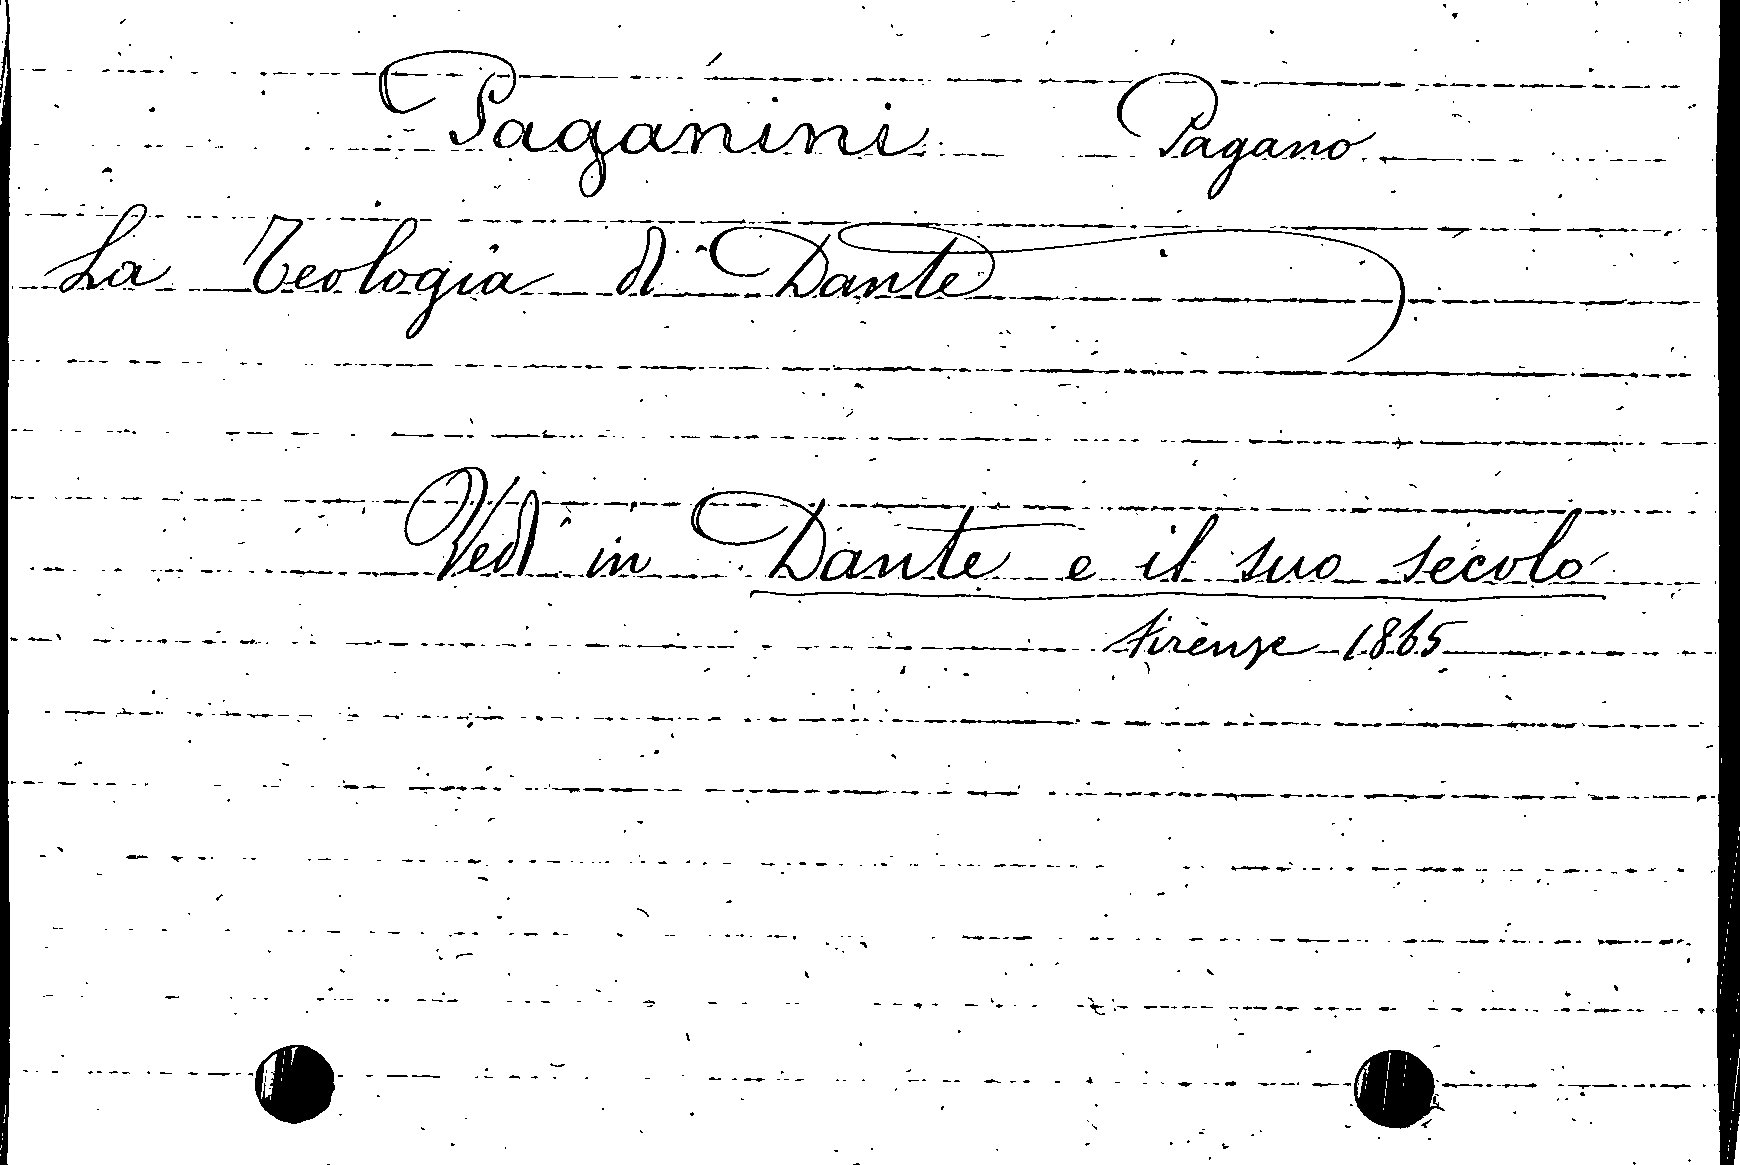 Paganini Pagano
La Teologia di Dante
Vedi in Dante e il suo secolo
Firenze 1865